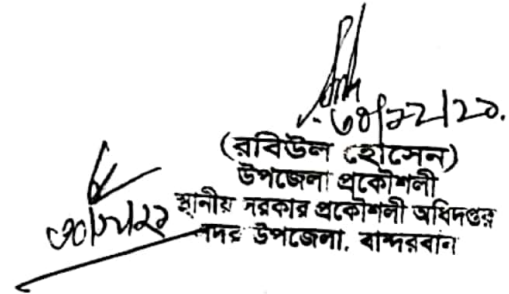 ৩০/১২/২১.
(রবিউল হোসেন)
উপজেলা প্রকৌশলী
স্থানীয় সরকার প্রকৌশলী অধিদপ্তর
সদর উপজেলা, বান্দরবান
৩০/১২/২১